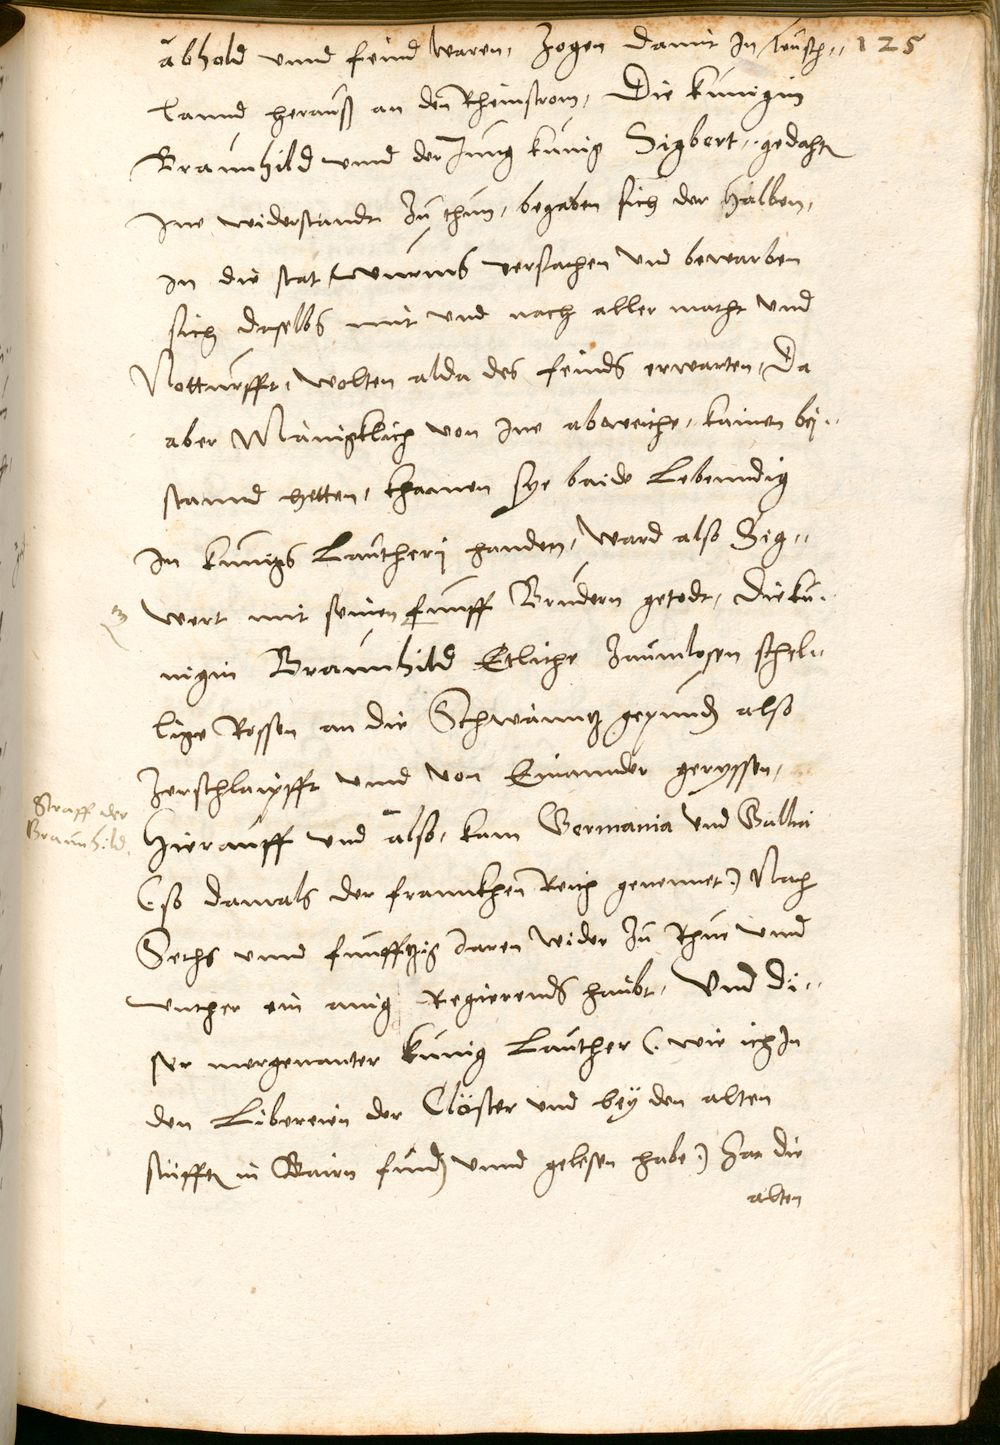 abhold vnnd feind waren, zogen damit In teutsch= 125
lannd herauß an den Rheinstrom, Die künigin
Braunhild vnnd der Jung künig Sigbert, gedachtn
Ine widerstandt zu thun, begaben sich der halben,
In die stat wurms versachen vnd bewarben
sich daselbs mit vnd nach aller macht vnd
Notturfft, wolten alda des feinds erwarten, Da
aber Mänigklich von Ine abweiche, kainen bej=
stannd hetten, khamen sye baide Lebenndig
In künigs Lautherj handen, ward also Sig=
wert mit seinen fünff Brüdern getodt, Die kü=
nigin Braunhild Etliche zaumlosen schel=
ligen Rossen an die Schwänntz gepunden also
zerschlaipfft vnnd von Einannder geryssen,
Straff der
Braunhild.
Hierauff vnd also, kam Germania vnd Gallia
(: so damals der frannkhen Reich genennet :) Nach
Sechs vnnd fünfftzig Jaren wider zu Rhue vnnd
vnther ein ainig Regierends haubt, Vnd di=
ser mergenanter künig Lauther (: wie ich In
den Libereien der Clöster vnd bey den alten
stüfften in Bairn funden vnnd gelesen habe :) hat die
alten